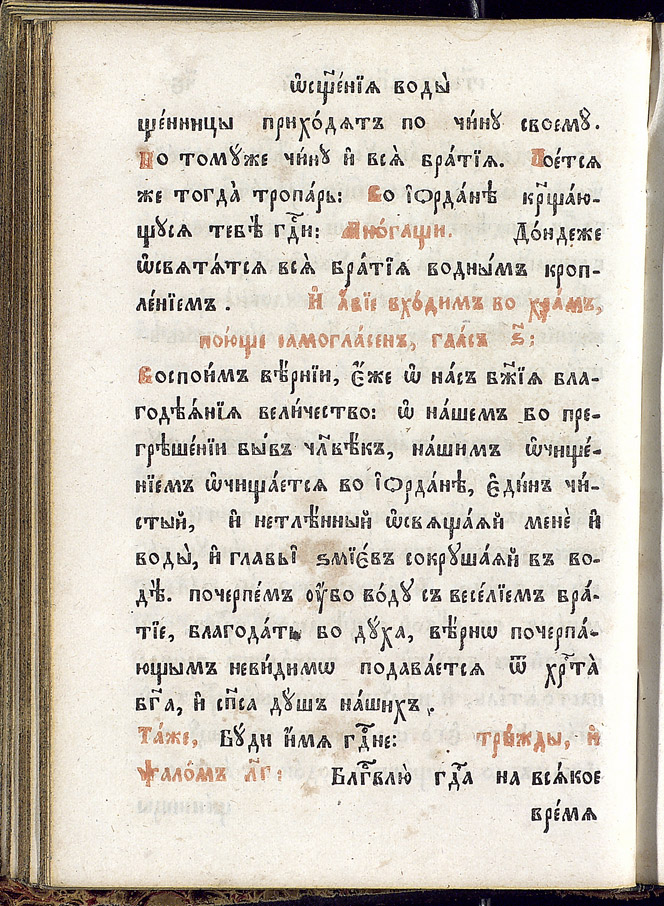 ѡ҆сщ҃е́нїѧ воды̀
ще́нницы прихо́дѧтъ по чи́нꙋ своемꙋ̀.
По томꙋ́же чи́нꙋ и҆ всѧ̀ бра́тїѧ. Пое́тсѧ
же тогда̀ тропа́рь: Во і҆ѻрда́нѣ кр҃ща́ю-
щꙋсѧ тебѣ̀ гд҃и: Мно́гащи. До́ндеже
ѡ҆свѧтѧ́тсѧ всѧ̀ бра́тїѧ водны́мъ кроп-
ле́нїемъ. И҆ а҆́вїе вхо́димъ во хра́мъ,
пою́ще самогла́сенъ, гла́съ ѕ҃:
Воспои́мъ вѣ́рнїи, є҆́же ѡ҆ на́съ бж҃їѧ бла-
годѣѧ́нїѧ вели́чество: ѡ҆ на́шемъ бо пре-
грѣше́нїи бы́въ чл҃вѣ́къ, на́шимъ ѡ҆чище́-
нїемъ ѡ҆чища́етсѧ во і҆ѻрда́нѣ, є҆ди́нъ чи́-
стый, и҆ нетлѣ́нный ѡ҆свѧща́ѧй менѐ и҆
воды̀, и҆ главы̀ ѕмїє́въ сокрꙋша́ѧй въ во-
дѣ̀. почерпе́мъ ᲂу҆̀бо во́дꙋ съ весе́лїемъ бра́-
тїе, благода́ть бо дꙋ́ха, вѣ́рнѡ почерпа́-
ющымъ неви́димѡ подава́етсѧ ѿ хрⷭ҇та̀
бг҃а, и҆ сп҃са дꙋ́шъ на́шихъ.
Та́же, Бꙋ́ди и҆́мѧ гдⷭ҇не: три́жды, и҆
ѱало́мъ л҃г: Благⷭ҇влю̀ гдⷭ҇а на всѧ́кое
вре́мѧ